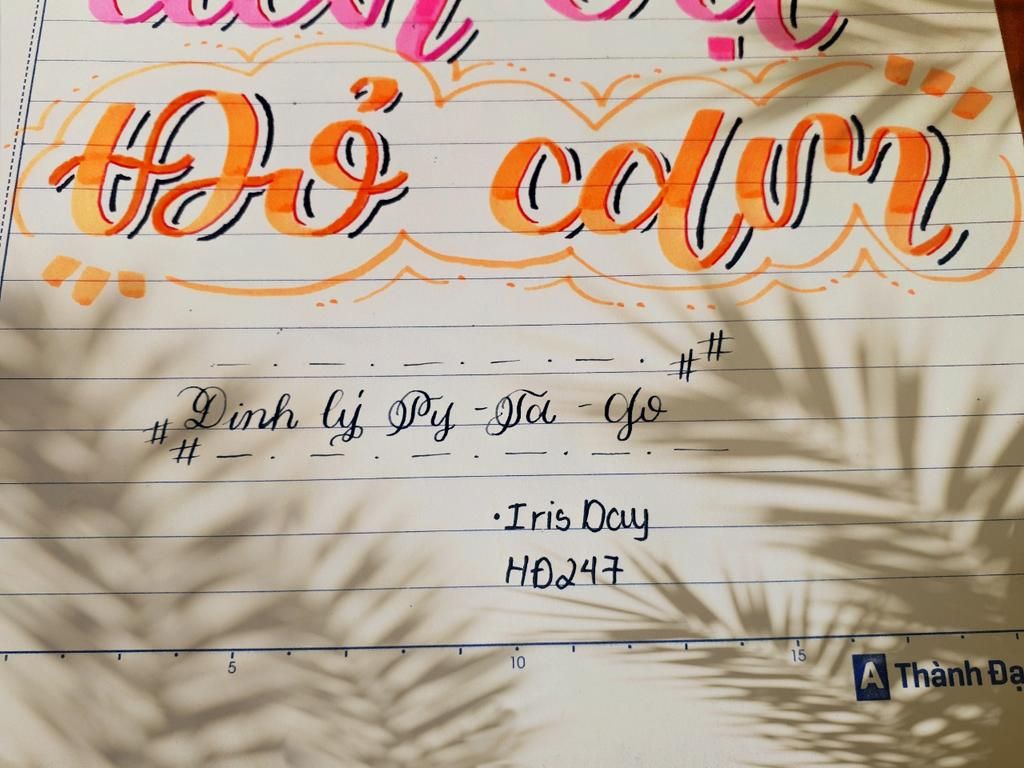 Đỏ cam
# #
# Đinh lý Py - Ta - Go
#
· Iris Day
HĐ247
5 10 15
A Thành Đạ